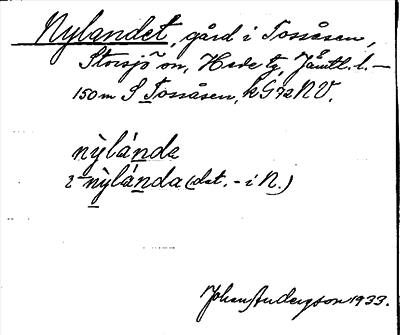 Nylandet, gård i Tossåsen,
Storsjö sn, Hede tg, Jämtl. l. –
150m S Tossåsen, kG72NV.
nỳlánde
i nỳlánda (dat. - i N.)
Johan Anderson 1933.